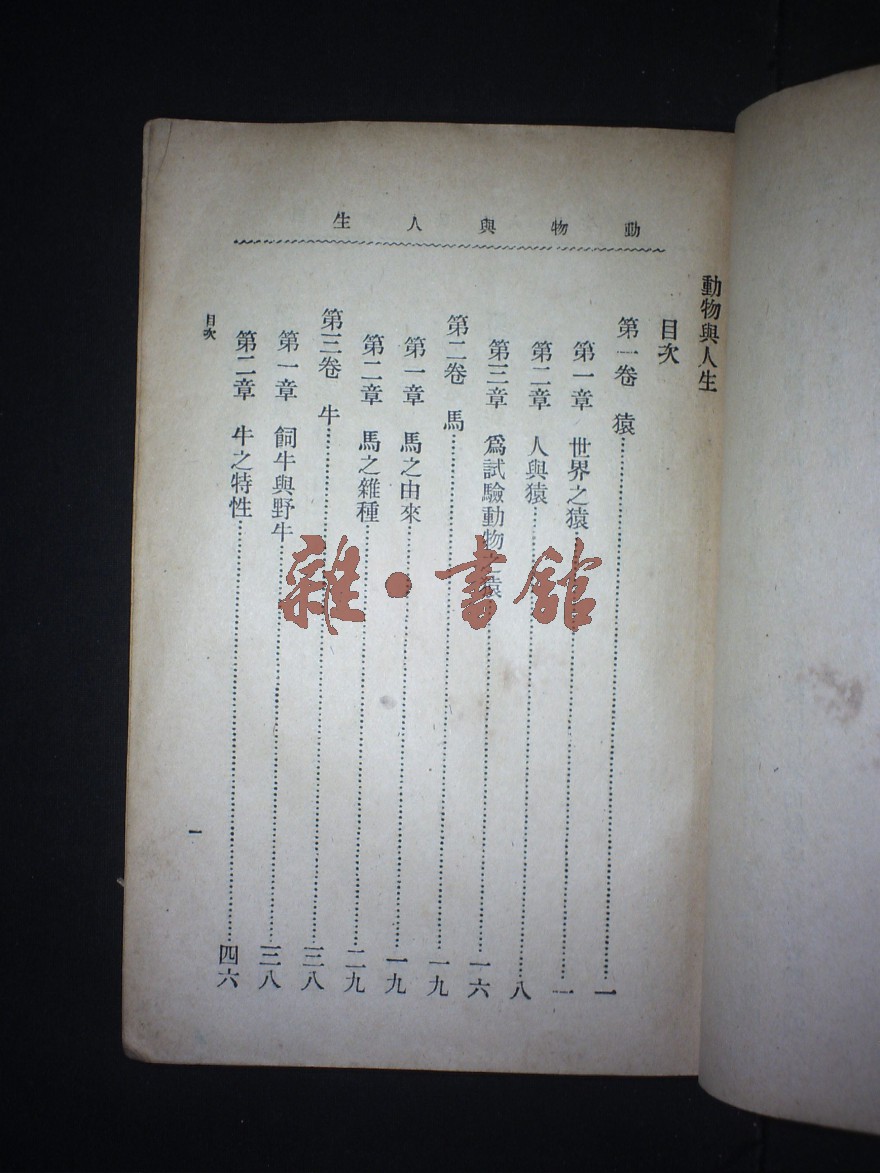 動物與人生
動物與人生
目次
第一卷 猿……一
第一章 世界之猿……一
第二章 人與猿……八
第三章 爲試驗動物之猿……一六
第二卷 馬……一九
第一章 馬之由來……一九
第二章 馬之雜種……二九
第三卷 牛……三八
第一章 飼牛與野牛……三八
第二章 牛之特性……四六
目次
一
雜·書館